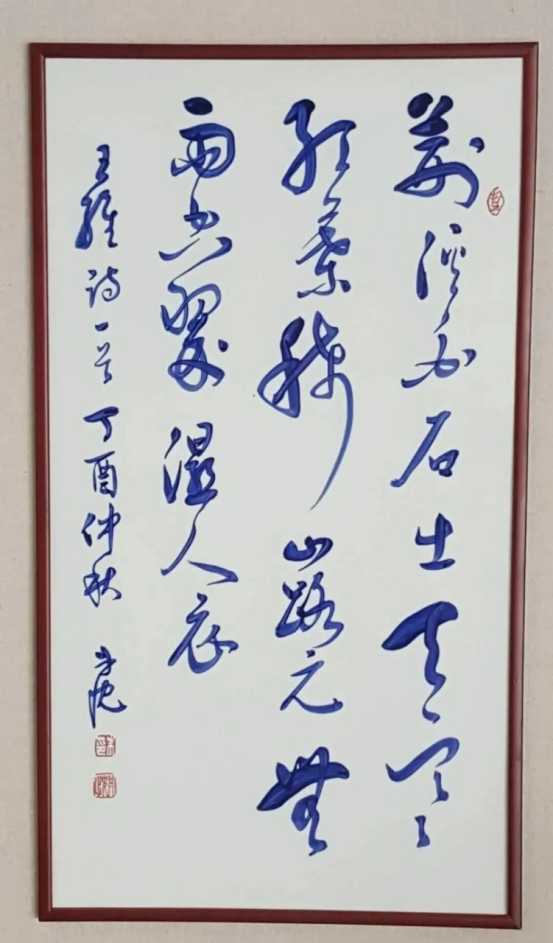 荆溪白石出天寒
红葉稀山路元無
雨空翠濕人衣
王維诗一首 丁酉仲秋